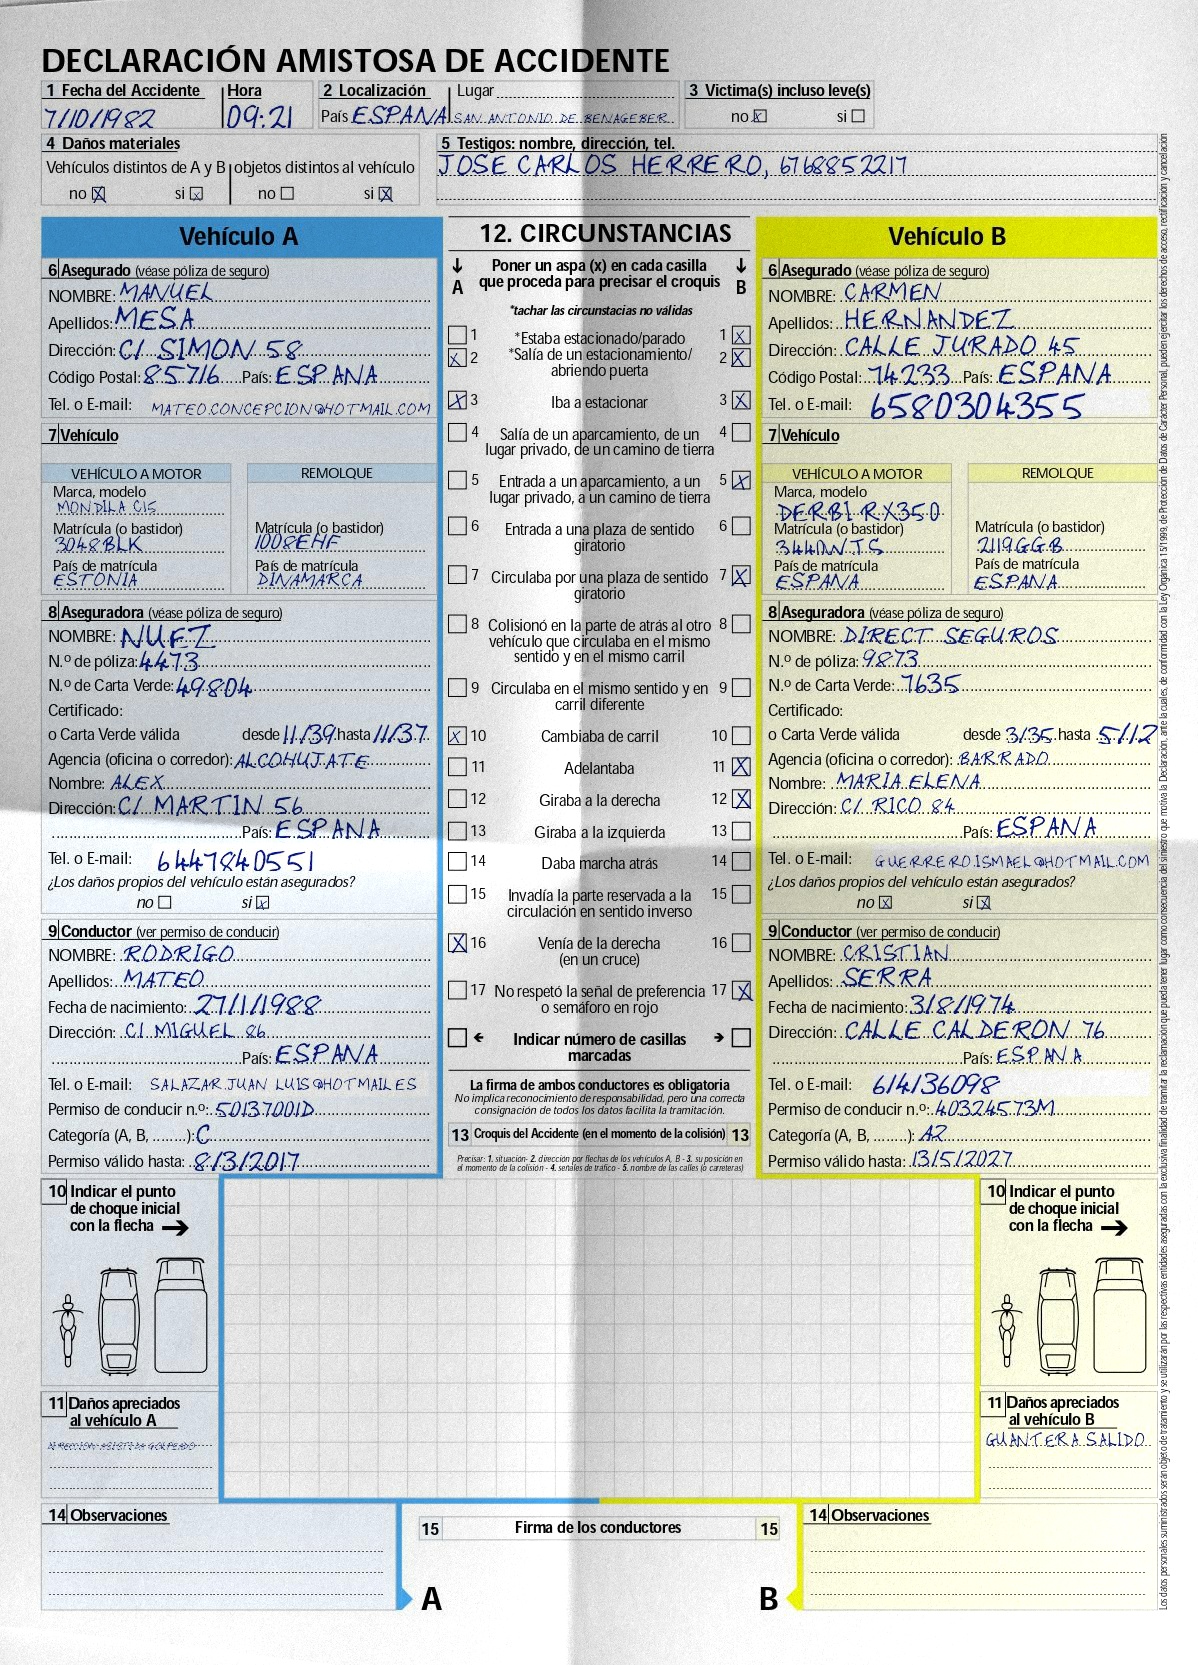 DECLARACIÓN AMISTOSA DE ACCIDENTE
1 Fecha del Accidente Hora 2 Localización Lugar 3 Victima(s) incluso leve(s)
7/10/1982 09:21 País ESPANA SAN ANTONIO DE BENAGEBER no X si
4 Daños materiales
Vehículos distintos de A y B objetos distintos al vehículo
no X si X no si X
5 Testigos: nombre, dirección, tel.
JOSE CARLOS HERRERO, 6768852217
Vehículo A
6 Asegurado (véase póliza de seguro)
NOMBRE: MANUEL
Apellidos: MESA
Dirección: C/ SIMON 58
Código Postal: 85716 País: ESPANA
Tel. o E-mail: MATEO.CONCEPCION@HOTMAIL.COM
7 Vehículo
VEHÍCULO A MOTOR REMOLQUE
Marca, modelo
MONDILA C15
Matrícula (o bastidor) Matrícula (o bastidor)
3048BLK 1008EHF
País de matrícula País de matrícula
ESTONIA DINAMARCA
8 Aseguradora (véase póliza de seguro)
NOMBRE: NUEZ
N.º de póliza: 4473
N.º de Carta Verde: 49804
Certificado:
o Carta Verde válida desde 11/39 hasta 11/37
Agencia (oficina o corredor): ALCOHUJATE
Nombre: ALEX
Dirección: C/ MARTIN 56
País: ESPANA
Tel. o E-mail: 6447840551
¿Los daños propios del vehículo están asegurados?
no si X
9 Conductor (ver permiso de conducir)
NOMBRE: RODRIGO
Apellidos: MATEO
Fecha de nacimiento: 27/1/1988
Dirección: C/ MIGUEL 86
País: ESPANA
Tel. o E-mail: SALAZAR.JUAN LUIS@HOTMAIL.ES
Permiso de conducir n.º: 50137001D
Categoría (A, B, ........): C
Permiso válido hasta: 8/3/2017
10 Indicar el punto
de choque inicial
con la flecha
11 Daños apreciados
al vehículo A
DIRECCION ASISTIDA GOLPEADO
14 Observaciones
12. CIRCUNSTANCIAS
A Poner un aspa (x) en cada casilla B
que proceda para precisar el croquis
*tachar las circunstacias no válidas
1 *Estaba estacionado/parado 1 X
X 2 *Salía de un estacionamiento/ 2 X
abriendo puerta
X 3 Iba a estacionar 3 X
4 Salía de un aparcamiento, de un 4
lugar privado, de un camino de tierra
5 Entrada a un aparcamiento, a un 5 X
lugar privado, a un camino de tierra
6 Entrada a una plaza de sentido 6
giratorio
7 Circulaba por una plaza de sentido 7 X
giratorio
8 Colisionó en la parte de atrás al otro 8
vehículo que circulaba en el mismo
sentido y en el mismo carril
9 Circulaba en el mismo sentido y en 9
carril diferente
X 10 Cambiaba de carril 10
11 Adelantaba 11 X
12 Giraba a la derecha 12 X
13 Giraba a la izquierda 13
14 Daba marcha atrás 14
15 Invadía la parte reservada a la 15
circulación en sentido inverso
X 16 Venía de la derecha 16
(en un cruce)
17 No respetó la señal de preferencia 17 X
o semáforo en rojo
Indicar número de casillas
marcadas
La firma de ambos conductores es obligatoria
No implica reconocimiento de responsabilidad, pero una correcta
consignación de todos los datos facilita la tramitación.
13 Croquis del Accidente (en el momento de la colisión) 13
Precisar: 1. situación- 2. dirección por flechas de los vehículos A, B - 3. su posición en
el momento de la colisión - 4. señales de tráfico - 5. nombre de las calles (o carreteras)
15 Firma de los conductores 15
A B
Vehículo B
6 Asegurado (véase póliza de seguro)
NOMBRE: CARMEN
Apellidos: HERNANDEZ
Dirección: CALLE JURADO 45
Código Postal: 74233 País: ESPANA
Tel. o E-mail: 6580304355
7 Vehículo
VEHÍCULO A MOTOR REMOLQUE
Marca, modelo
DERBI RX350
Matrícula (o bastidor) Matrícula (o bastidor)
3440WTS 2119GGB
País de matrícula País de matrícula
ESPANA ESPANA
8 Aseguradora (véase póliza de seguro)
NOMBRE: DIRECT SEGUROS
N.º de póliza: 9873
N.º de Carta Verde: 7635
Certificado:
o Carta Verde válida desde 3/35 hasta 5/12
Agencia (oficina o corredor): BARRADO
Nombre: MARIA ELENA
Dirección: C/ RICO 84
País: ESPANA
Tel. o E-mail: GUERRERO.ISMAEL@HOTMAIL.COM
¿Los daños propios del vehículo están asegurados?
no X si X
9 Conductor (ver permiso de conducir)
NOMBRE: CRISTIAN
Apellidos: SERRA
Fecha de nacimiento: 3/8/1974
Dirección: CALLE CALDERON 76
País: ESPANA
Tel. o E-mail: 614136098
Permiso de conducir n.º: 40324573M
Categoría (A, B, ........): A2
Permiso válido hasta: 13/5/2027
10 Indicar el punto
de choque inicial
con la flecha
11 Daños apreciados
al vehículo B
GUANTERA SALIDO
14 Observaciones
Los datos personales suministrados seran objeto de tratamiento y se utilizaran por las respectivas entidades aseguradas con la exclusiva finalidad de tramitar la reclamación que pueda tener lugar como consecuencia del siniestro que motiva la Declaración, ante la cuales, de conformidad con la Ley Organica 15/1999, de Protección de Datos de Carácter Personal, pueden ejercitar los derechos de acceso, rectificación y cancelación